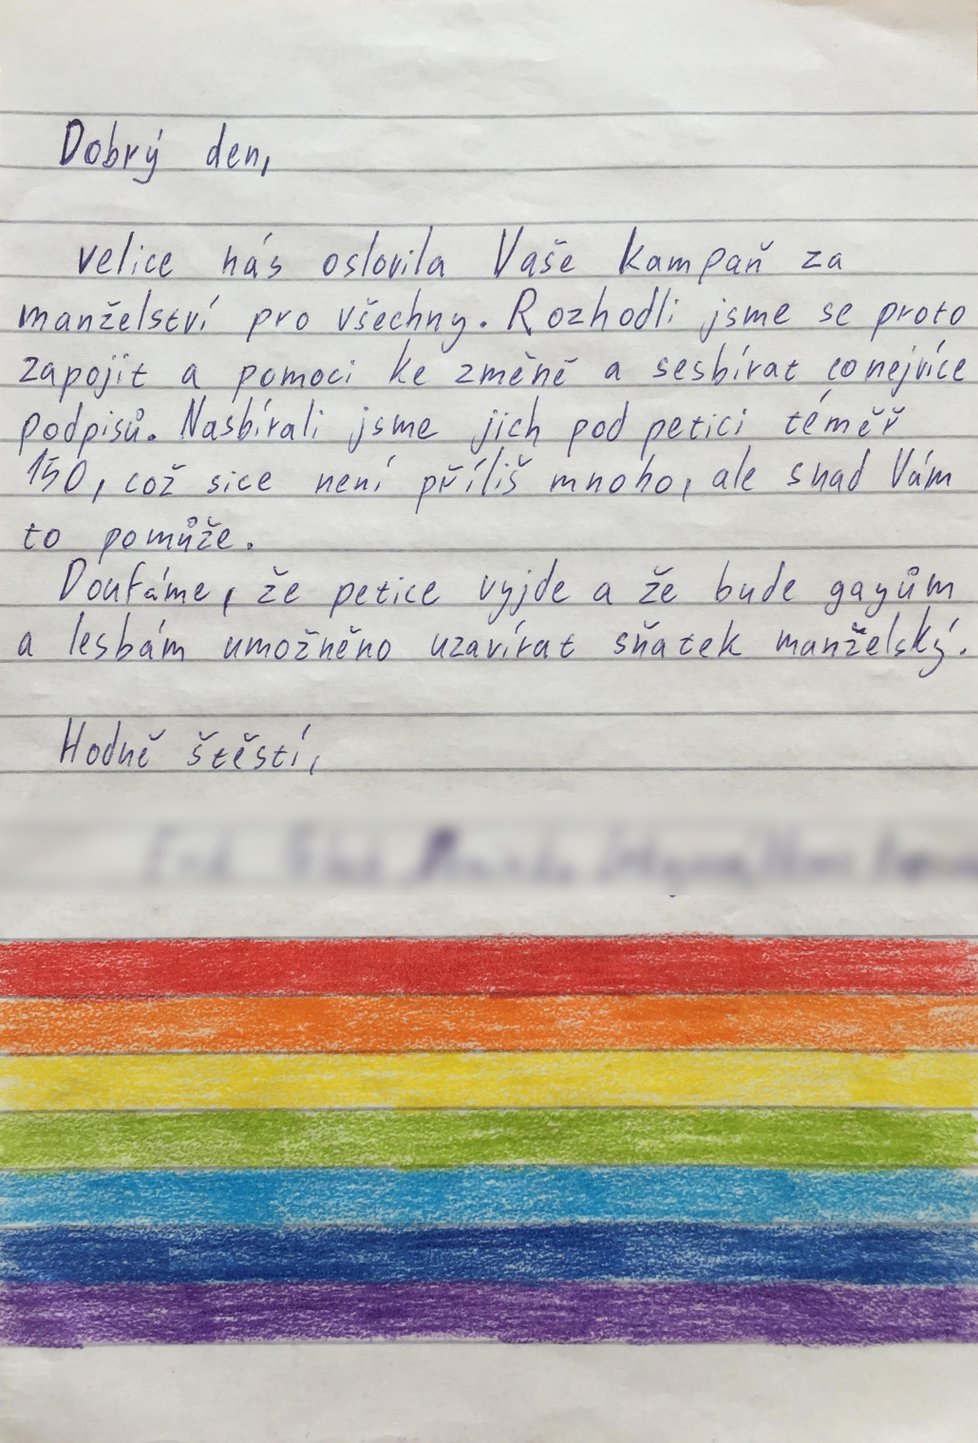 Dobrý den,
velice nás oslovila Vaše kampaň za
manželství pro všechny. Rozhodli jsme se proto
zapojit a pomoci ke změně a sesbírat conejvíce
podpisů. Nasbírali jsme jich pod petici téměř
150, což sice není příliš mnoho, ale snad Vám
to pomůže.
Doufáme, že petice vyjde a že bude gayům
a lesbám umožněno uzavírat sňatek manželský.
Hodně štěstí,